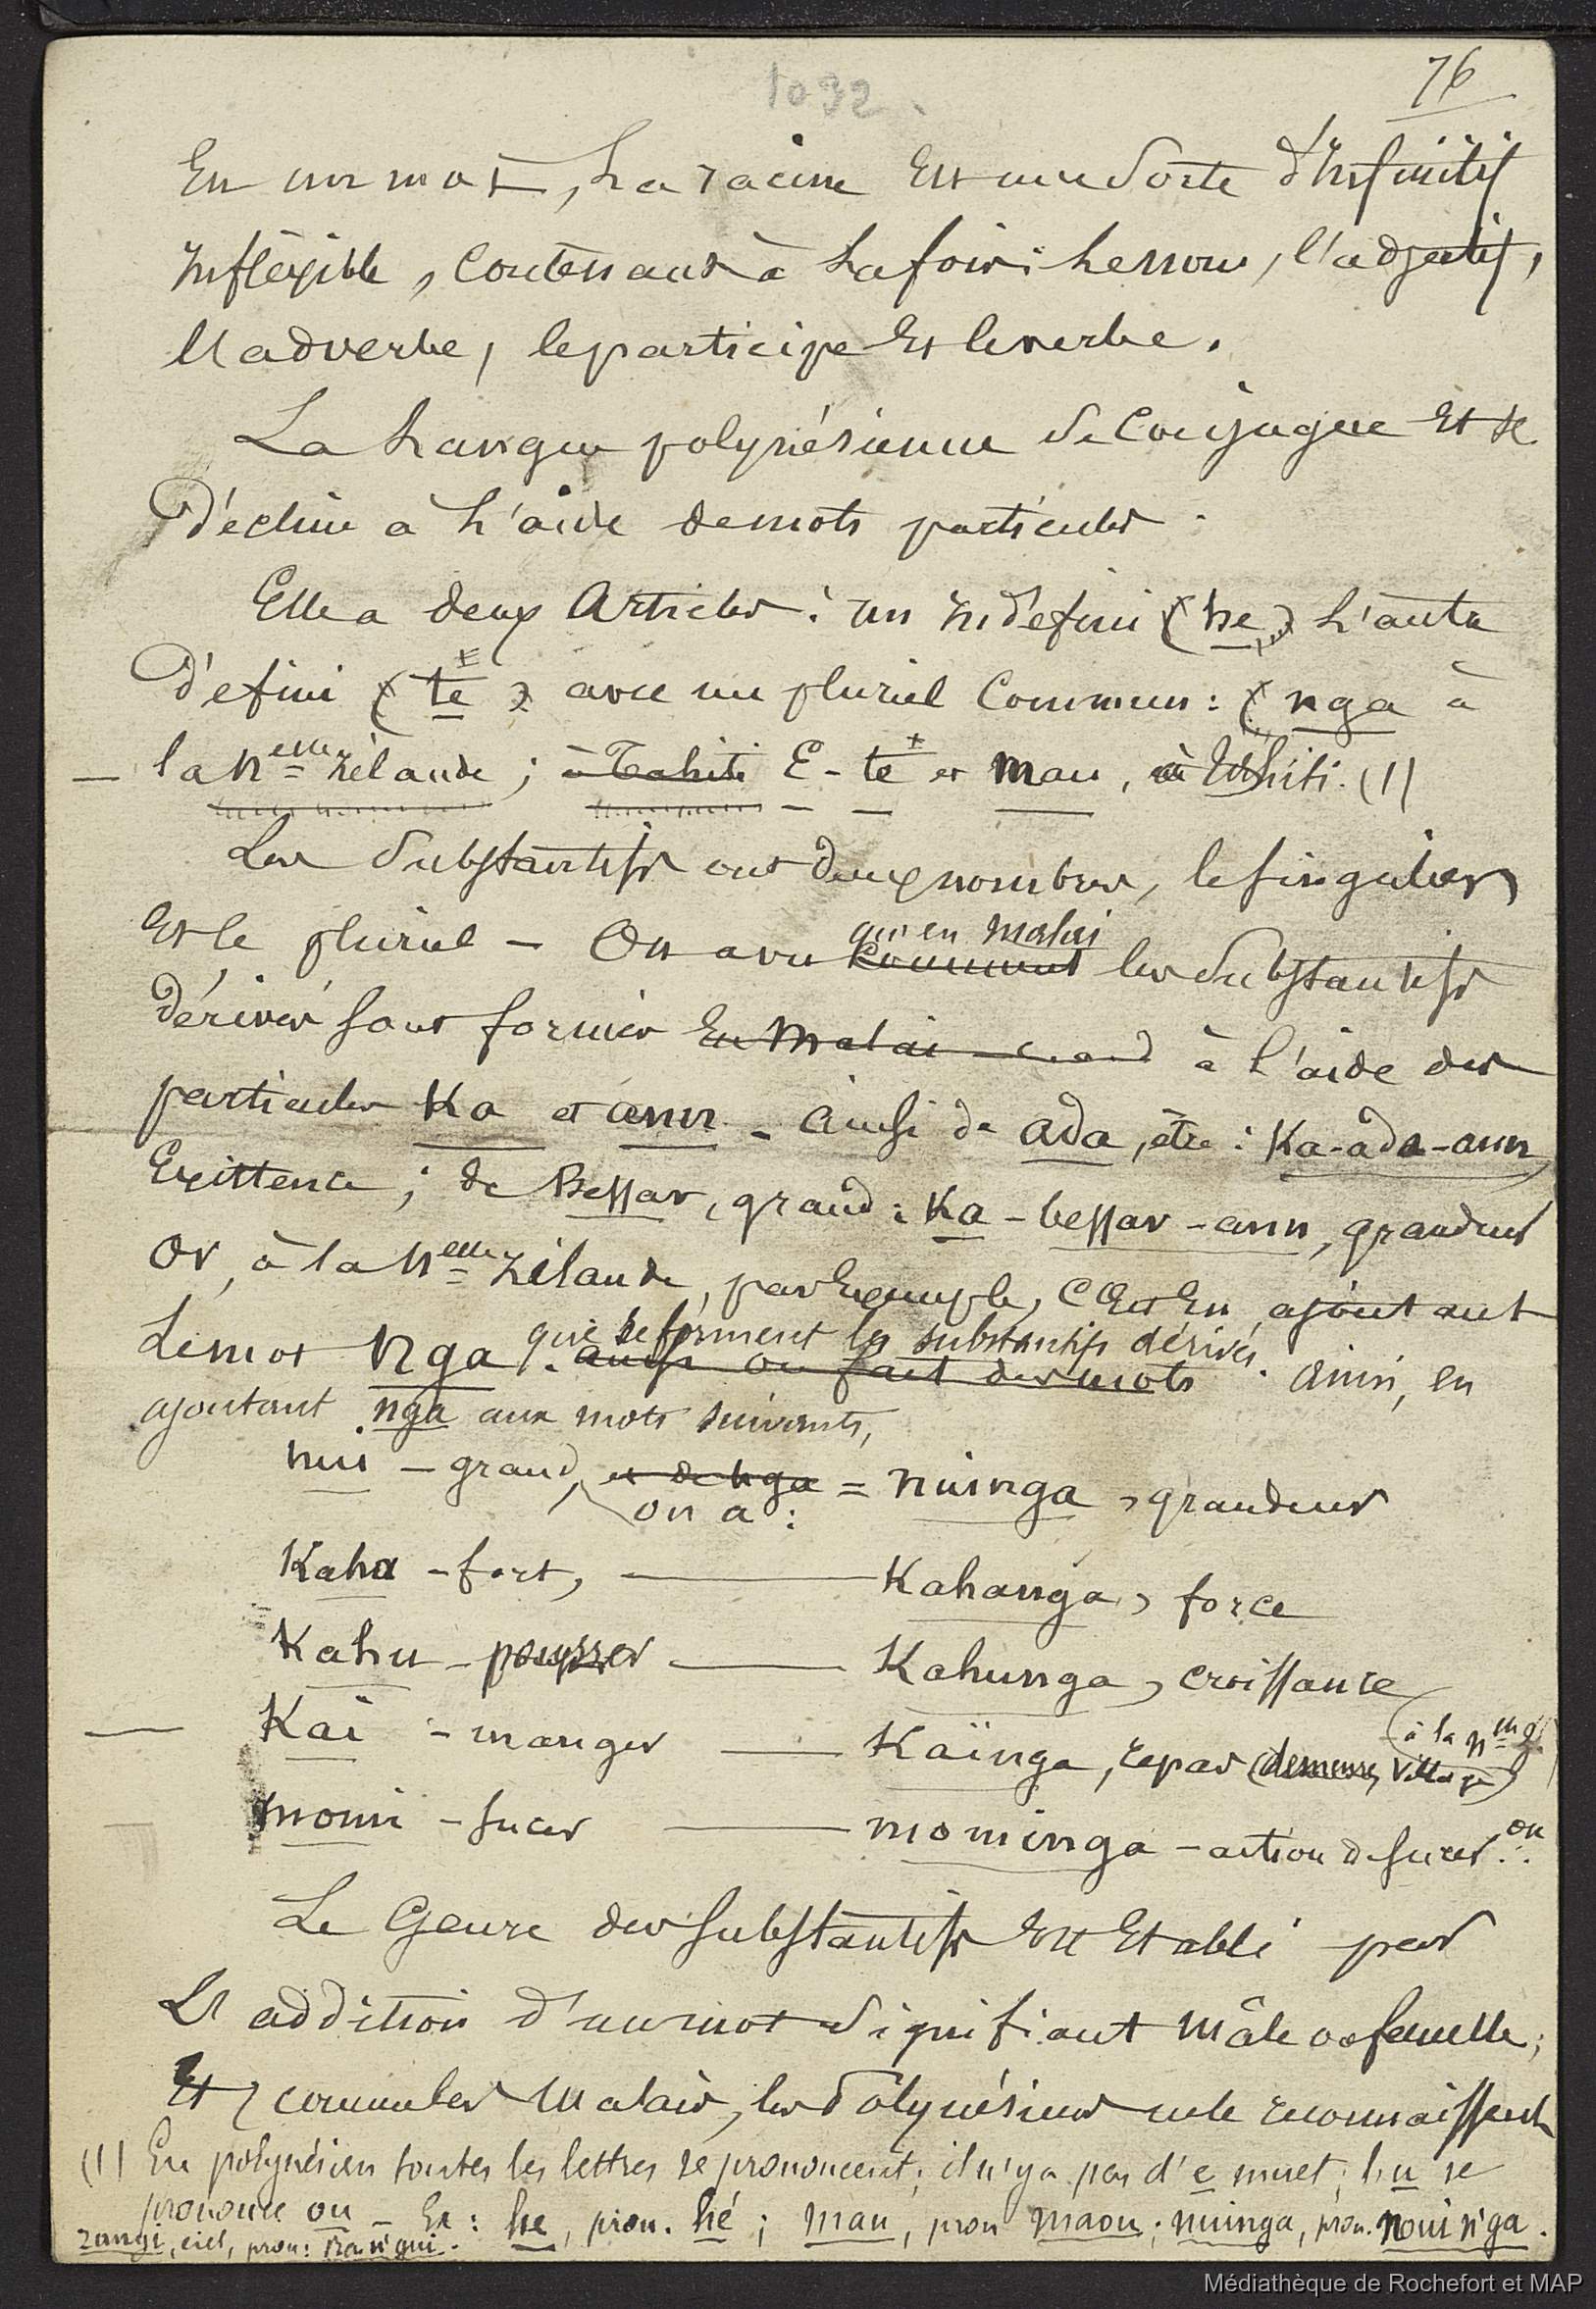 1032.
76
En un mot, La racine Est une Sorte d'Infinitif
Inflexible, Contenant à La fois : Le nom, l'adjectif,
l'adverbe, le participe Et le verbe.
La Langue polynésienne Se Conjugue Et se
Décline à L'aide de mots particules.
Elle a deux Articles : un Indéfini (he) L'autre
Défini (te) avec un pluriel Commun : (nga à
la Nelle Zélande ; à Tahiti E - te et mau, à Tahiti. (1)
Les Substantifs ont deux nombres, le singulier
Et le pluriel - On a vu Comment les Substantifs
qu'en Malai
Dérivés sont formés En Malai à l'aide des
particules Ka et ann - Ainsi de ada, être : Ka-ada-ann
Existence ; de Bessar, grand : Ka-bessar-ann, grandeur
Or, à la Nelle Zélande, par Exemple, C'Est En ajoutant
que se forment les substantifs dérivés.
Le mot nga. ainsi on fait des mots Ainsi, en
ajoutant nga aux mots suivants,
nui - grand, et de nga = nuinga, grandeur
on a :
Kaha - fort, Kahanga, force
Kahu - pousser Kahunga, croissance
Kai - manger Kaïnga, repas (demeure, village)
à la Nlle Z.
momi - sucer mominga - action de sucer. on
Le Genre des Substantifs Est Etabli par
L'addition d'un mot Signifiant mâle ou femelle ;
Et, comme les Malais, les Polynésiens ne le reconnaissent
(1) En polynésien toutes les lettres se prononcent ; il n'y a pas d'e muet ; l'u se
prononce ou - Ex : he, pron. hé ; mau, pron maou ; nuinga, pron. noui n'ga.
rangi, ciel, pron : ran'gui.
Médiathèque de Rochefort et MAP